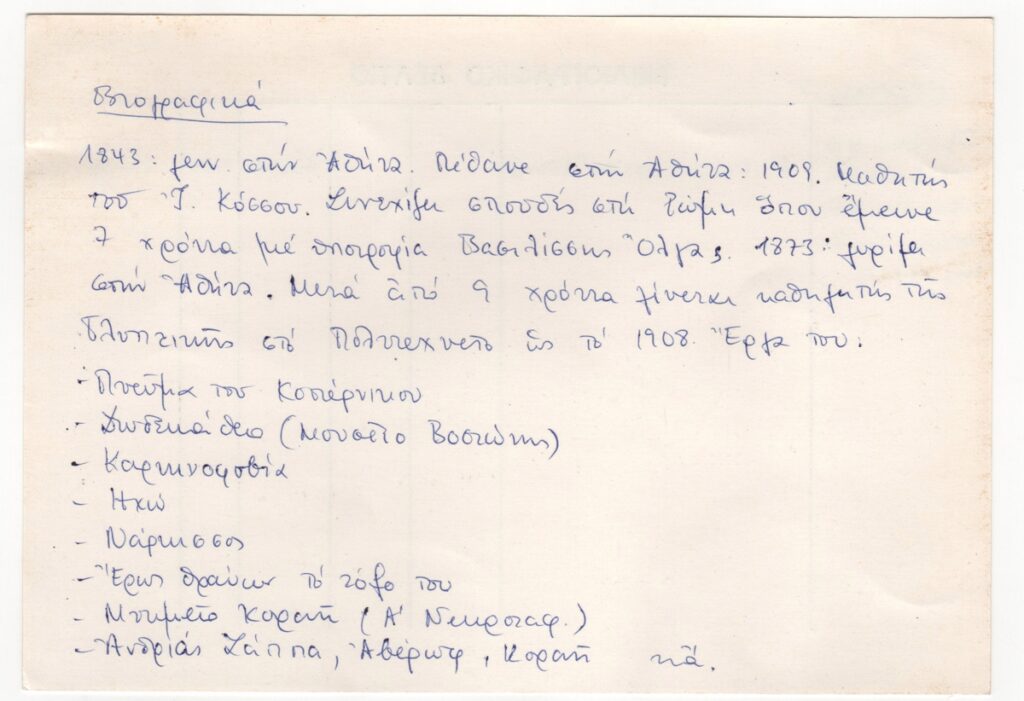 Βιογραφικά
1843: γενν. στήν Ἀθήνα. Πέθανε στήν Ἀθήνα: 1909. Μαθητής
τοῦ Ἰ. Κόσσου. Συνεχίζει σπουδές στή Ρώμη ὅπου ἔμεινε
7 χρόνια μέ ὑποτροφία Βασιλίσσης Ὄλγας. 1873: γυρίζει
στήν Ἀθήνα. Μετά ἀπό 9 χρόνια γίνεται καθηγητής τῆς
Γλυπτικῆς στό Πολυτεχνεῖο ὥς τό 1908. Ἔργα του:
- Πνεῦμα τοῦ Κοπέρνικου
- Δωδεκάθεο (Μουσεῖο Βοστώνης)
- Καρκινοφοβία
- Ηχώ
- Νάρκισσος
- Ἔρως θραύων τό τόξο του
- Μνημεῖο Κοραῆ (Α' Νεκροταφ.)
- Ἀνδριάς Ζάππα, Ἀβέρωφ, Κοραῆ κἄ.